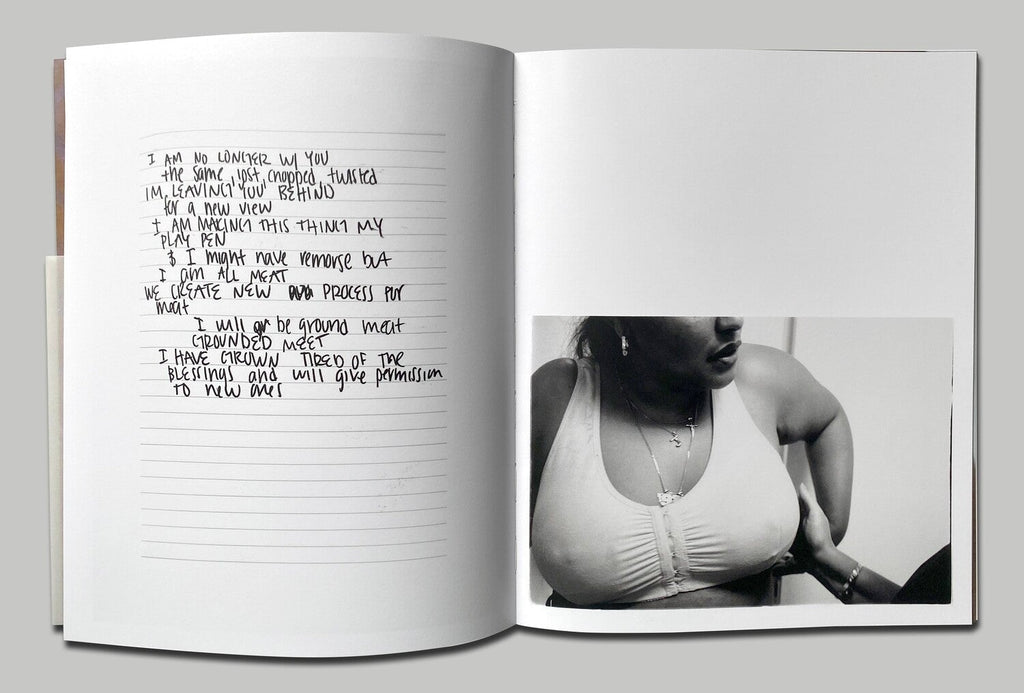 I AM NO LONGER W/ YOU
the same, lost, chopped, twisted
IM LEAVING YOU BEHIND
for a new view
I AM MAKING THIS THING MY
PLAY PEN
& I might have remorse but
I am ALL MEAT
WE CREATE NEW PROCESS FOR
meat
I will be ground meat
GROUNDED MEET
I HAVE GROWN TIRED OF THE
BLESSINGS and will give permission
TO new ones